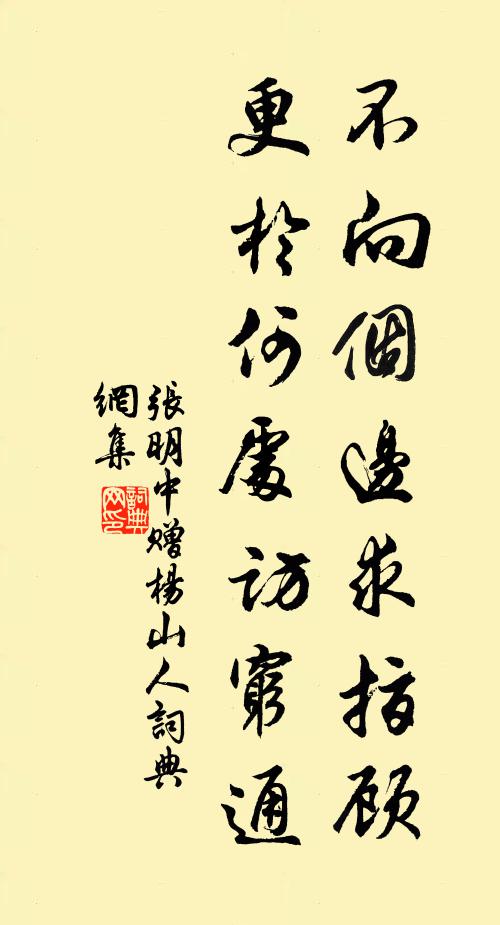 不向個邊求指顾
更於何處訪窮通
張明中赠楊山人詞典
網集
詞典
网印